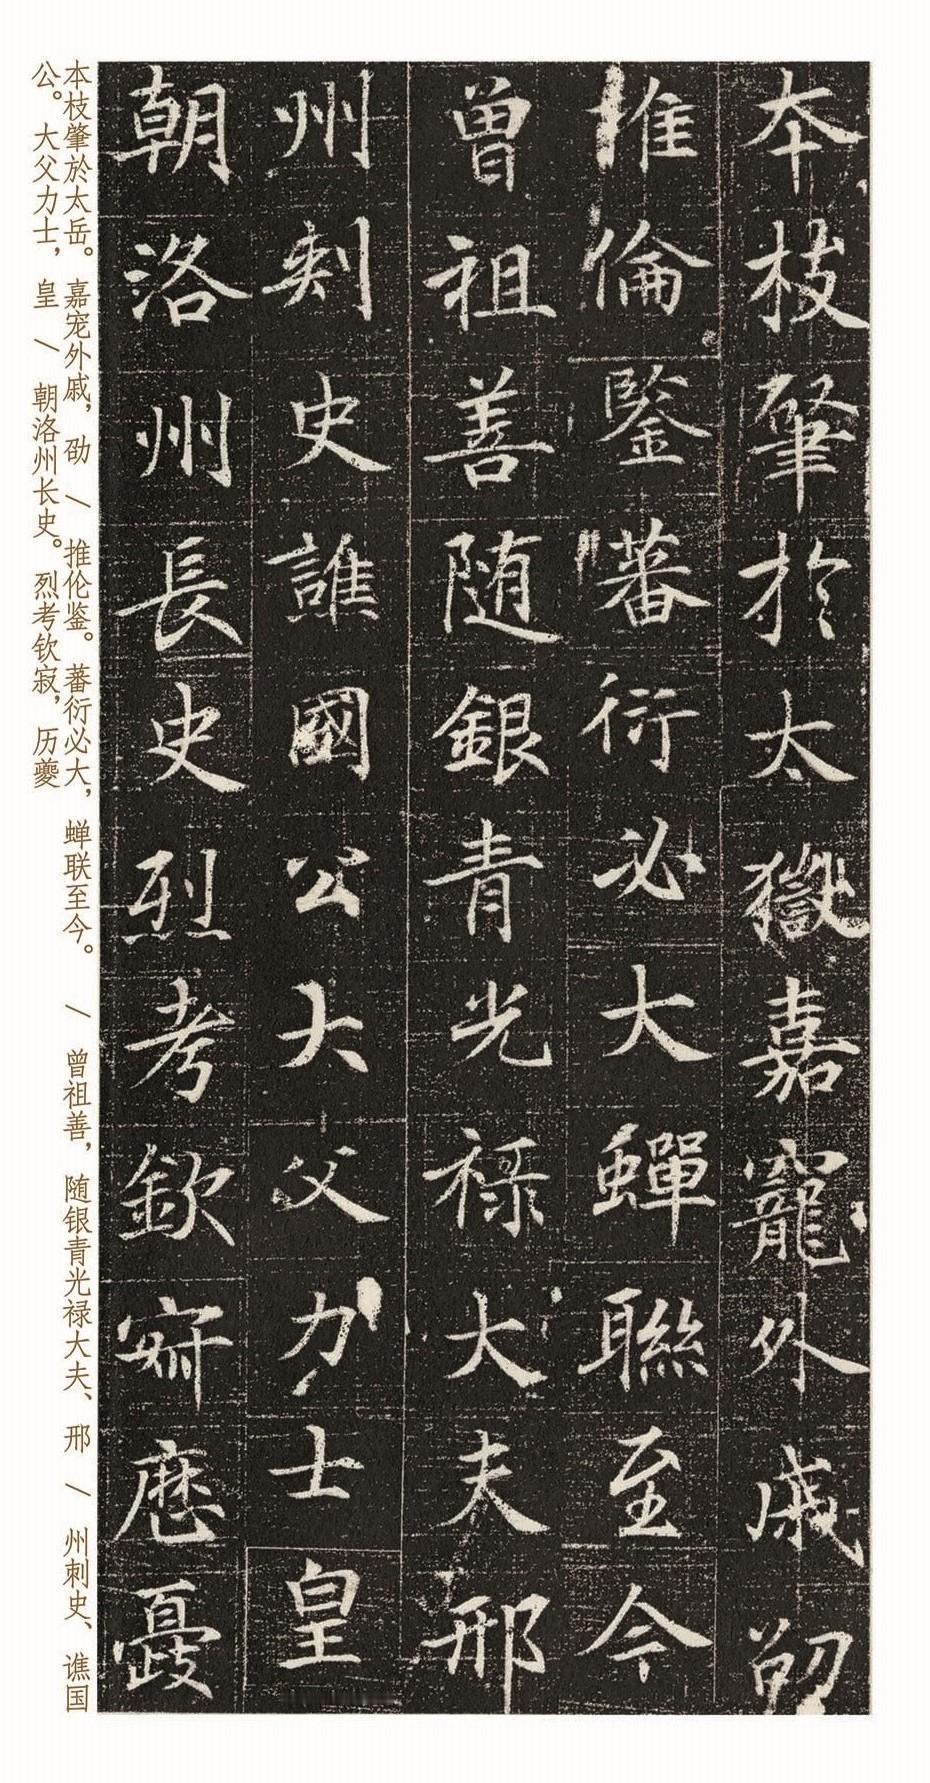 本枝肇於太嶽嘉寵外戚劭
推倫鑒蕃衍必大蟬聯至今
曾祖善随銀青光祿大夫邢
州刺史譙國公大父力士皇
朝洛州長史烈考欽寂歷夔
本枝肇於太岳。嘉宠外戚，劭 \ 推伦鉴。蕃衍必大，蝉联至今。 \ 曾祖善，随银青光禄大夫、邢 \ 州刺史、谯国
公。大父力士，皇 \ 朝洛州长史。烈考钦寂，历夔